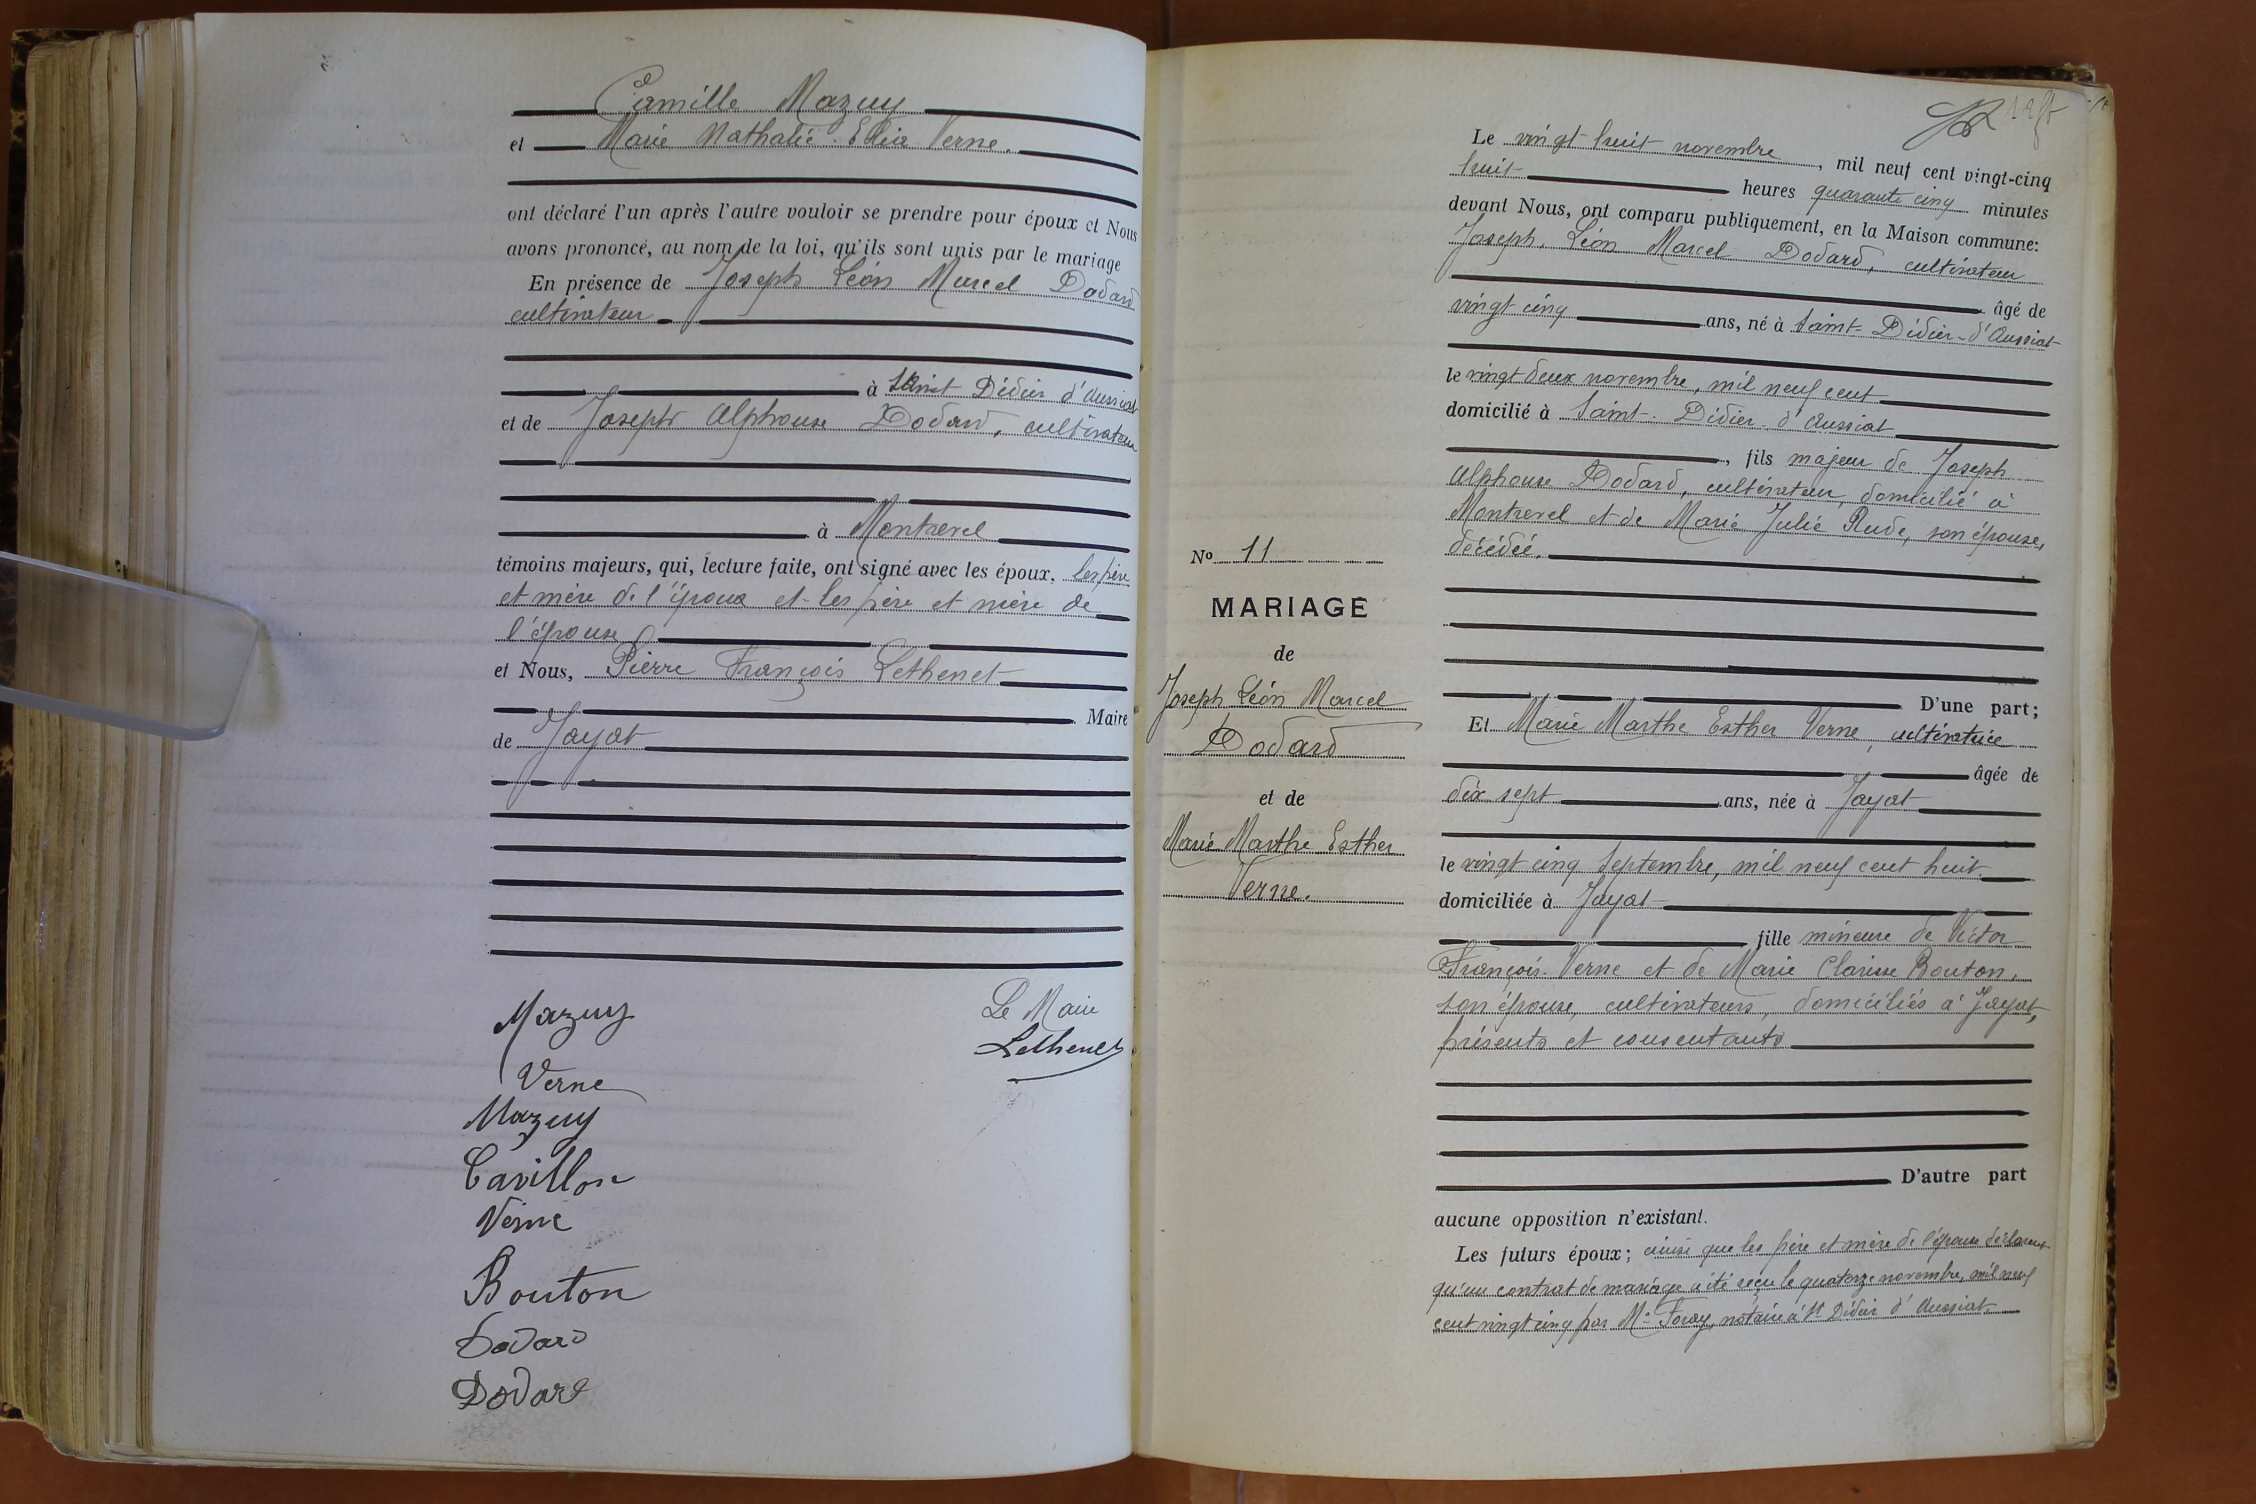 Camille Mazuy
et Marie Nathalie Elia Verne.
ont déclaré l'un après l'autre vouloir se prendre pour époux et Nous
avons prononcé, au nom de la loi, qu'ils sont unis par le mariage
En présence de Joseph Léon Marcel Dodard
cultivateur
à Saint Didier d'Aussiat
et de Joseph Alphonse Dodard, cultivateur
à Montrevel
témoins majeurs, qui, lecture faite, ont signé avec les époux, les père
et mère de l'époux et les père et mère de
l'épouse
et Nous, Pierre François Lethenet
Maire
de Jayat
Mazuy
Le Maire
Lethenet
Verne
Mazuy
Cavillon
Verne
Bouton
Dodard
Dodard
N° 11
MARIAGE
de
Joseph Léon Marcel
Dodard
et de
Marie Marthe Esther
Verne.
Le vingt huit novembre, mil neuf cent vingt-cinq
huit heures quarante cinq minutes
devant Nous, ont comparu publiquement, en la Maison commune:
Joseph Léon Marcel Dodard, cultivateur
âgé de
vingt cinq ans, né à Saint-Didier-d'Aussiat
le vingt deux novembre, mil neuf cent
domicilié à Saint-Didier d'Aussiat
, fils majeur de Joseph
Alphonse Dodard, cultivateur, domicilié à
Montrevel et de Marie Julie Rude, son épouse,
décédée.
D'une part;
Et Marie Marthe Esther Verne, cultivatrice
âgée de
dix sept ans, née à Jayat
le vingt cinq Septembre, mil neuf cent huit.
domiciliée à Jayat
fille mineure de Victor
François Verne et de Marie Clarisse Bouton,
son épouse, cultivateurs, domiciliés à Jayat,
présents et consentants
D'autre part
aucune opposition n'existant.
Les futurs époux; ainsi que les père et mère de l'épouse déclarent
qu'un contrat de mariage a été reçu le quatorze novembre, mil neuf
cent vingt cinq par Me Foray, notaire à St Didier d'Aussiat